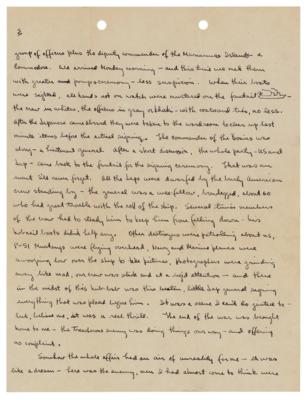 3
group of officers plus the deputy commander of the Marianas Islands - a
commodore. We arrived Monday morning - and this time we met them
with greater pomp & ceremony - less suspicion. When their boats
were sighted, all hands not on watch were mustered on the fantail
the men in whites, the officers in gray or khaki - with coats and ties, no less.
After the Japanese came aboard they were taken to the wardroom to clear up last
minute items before the actual signing. The commander of the Bonins was
along - a lieutenant general. After a short discussion, the whole party - US and
Nip - came back to the fantail for the signing ceremony. That was an
event I'll never forget. All the Nips were dwarfed by the burly American
crew standing by - the general was a wee fellow, bandaged, about 60
who had great trouble with the roll of the ship. Several times members
of the crew had to steady him to keep him from falling down - his
hobnail boots didn't help any. Other destroyers were patrolling about us,
P-51 Mustangs were flying overhead, Navy and Marine planes were
swooping low over the ship to take pictures, photographers were grinding
away like mad, our crew was silent and at a rigid attention - and there
in the midst of this hub-bub was this little Nip general signing
everything that was placed before him. It was a scene I can't do justice to -
but, believe me, it was a real thrill. The end of the war was brought
home to me - the treacherous enemy was doing things our way - and offering
no complaint.
Somehow the whole affair had an air of unreality for me - it was
like a dream - here was the enemy, men I had almost come to think were